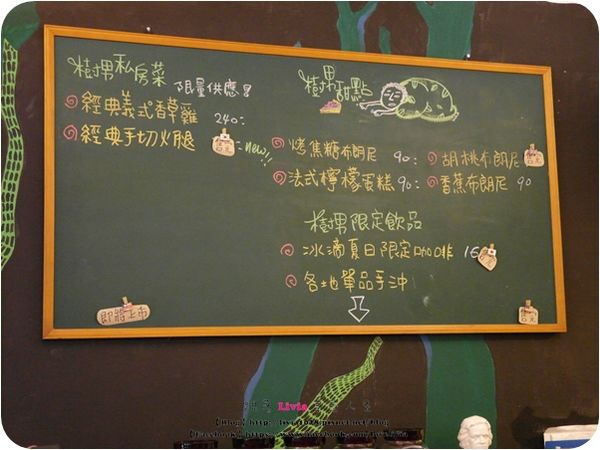 樹男私房菜 限量供應!
經典義式香草雞 240:
經典手切火腿 售完 : new!!
樹男甜點
烤焦糖布朗尼 90:
胡桃布朗尼 售完
法式檸檬蛋糕 90:
香蕉布朗尼 90
樹男限定飲品
冰滴夏日限定咖啡 16
各地單品手沖
即將上市
售完
Livia